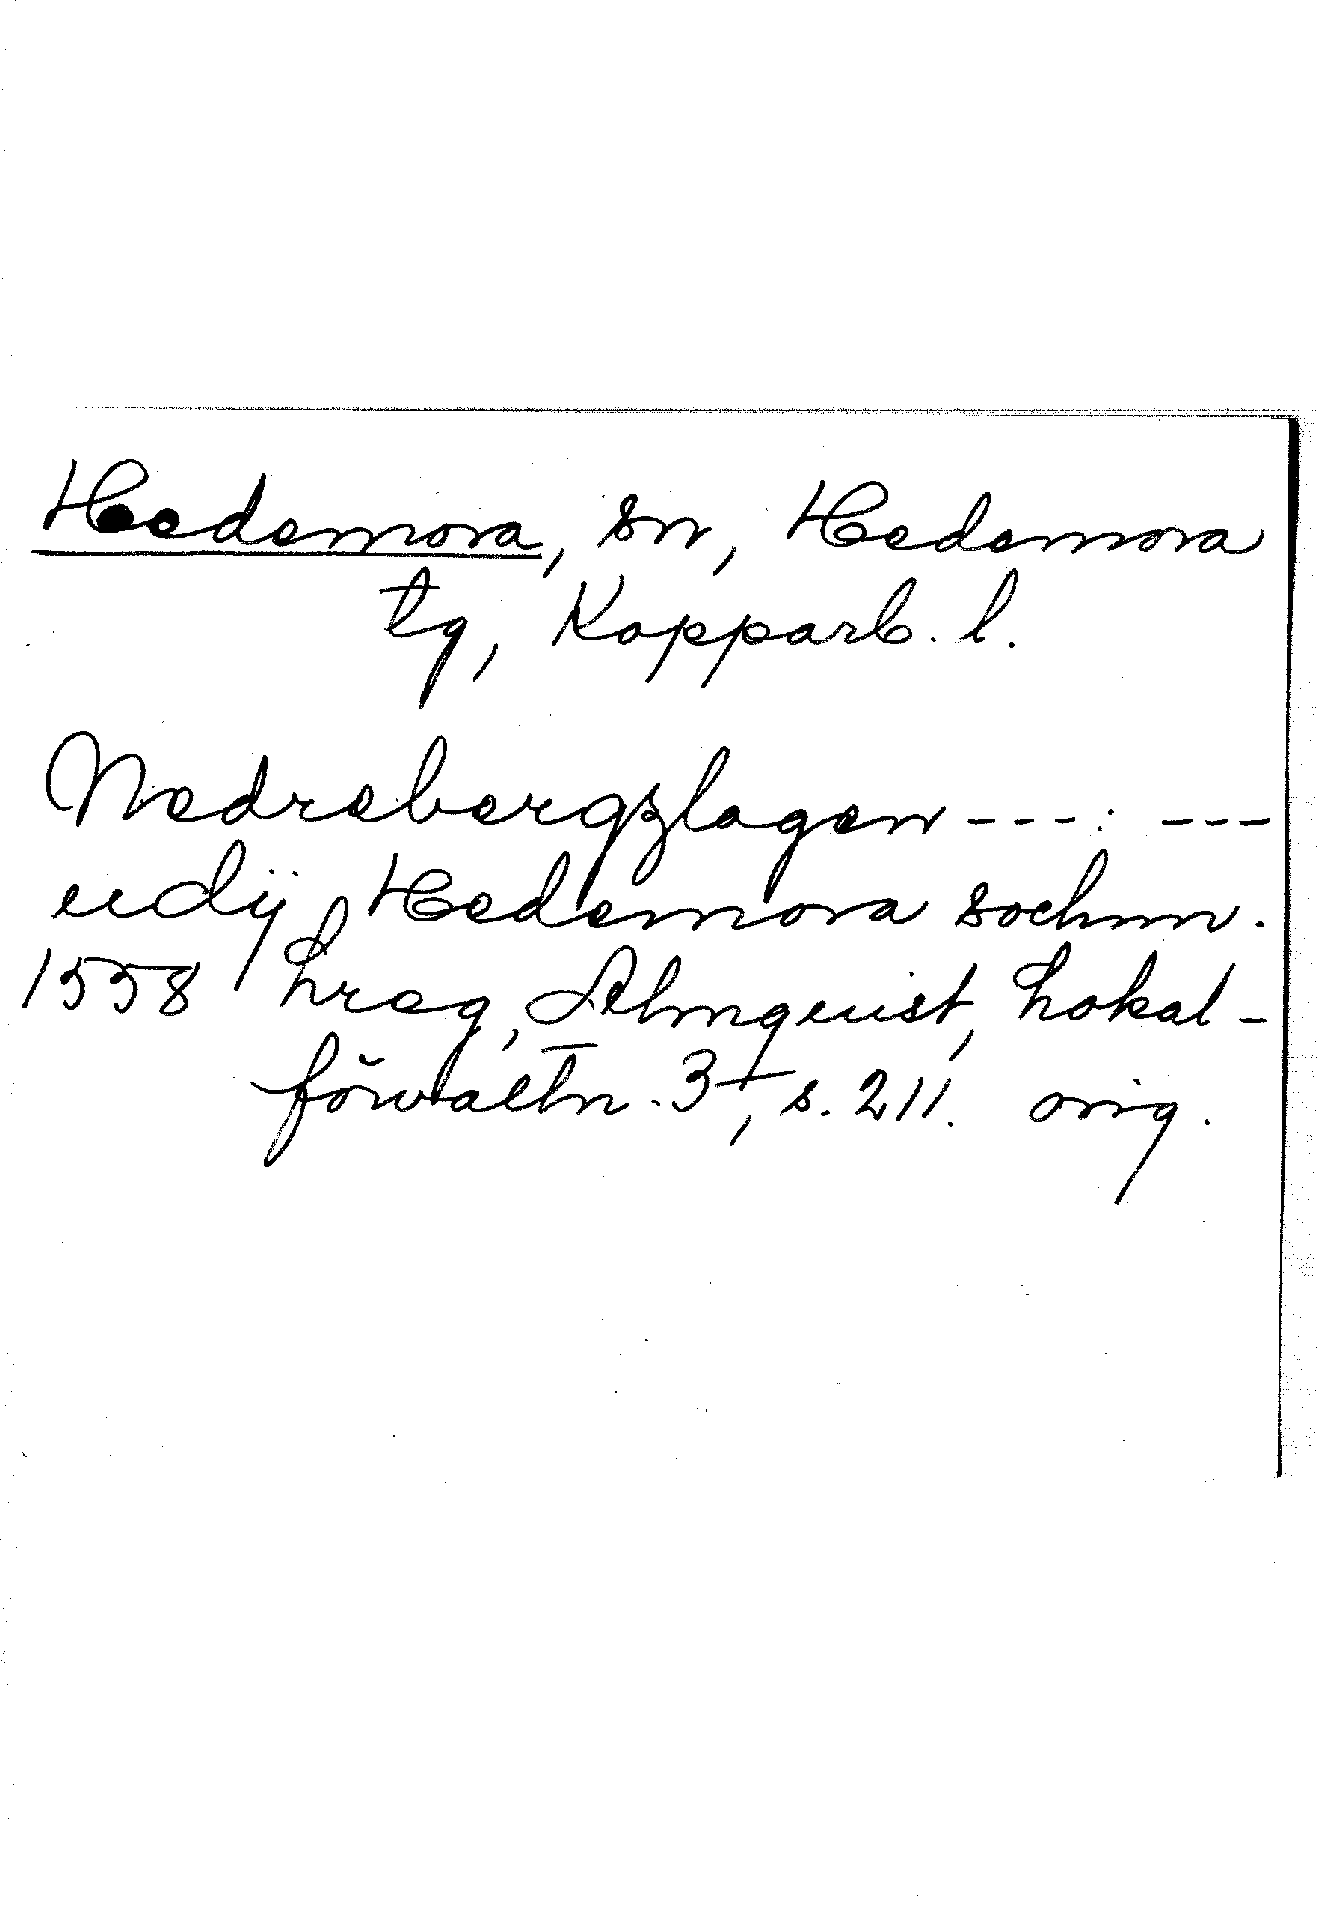 Hedemora, sn, Hedemora
tg, Kopparb. l.
Nedrebergzlagen ---: ---
udij Hedemora sochnn.
1558 Lreg, Almquist, Lokal-
förvaltn. 3, s. 211. orig.